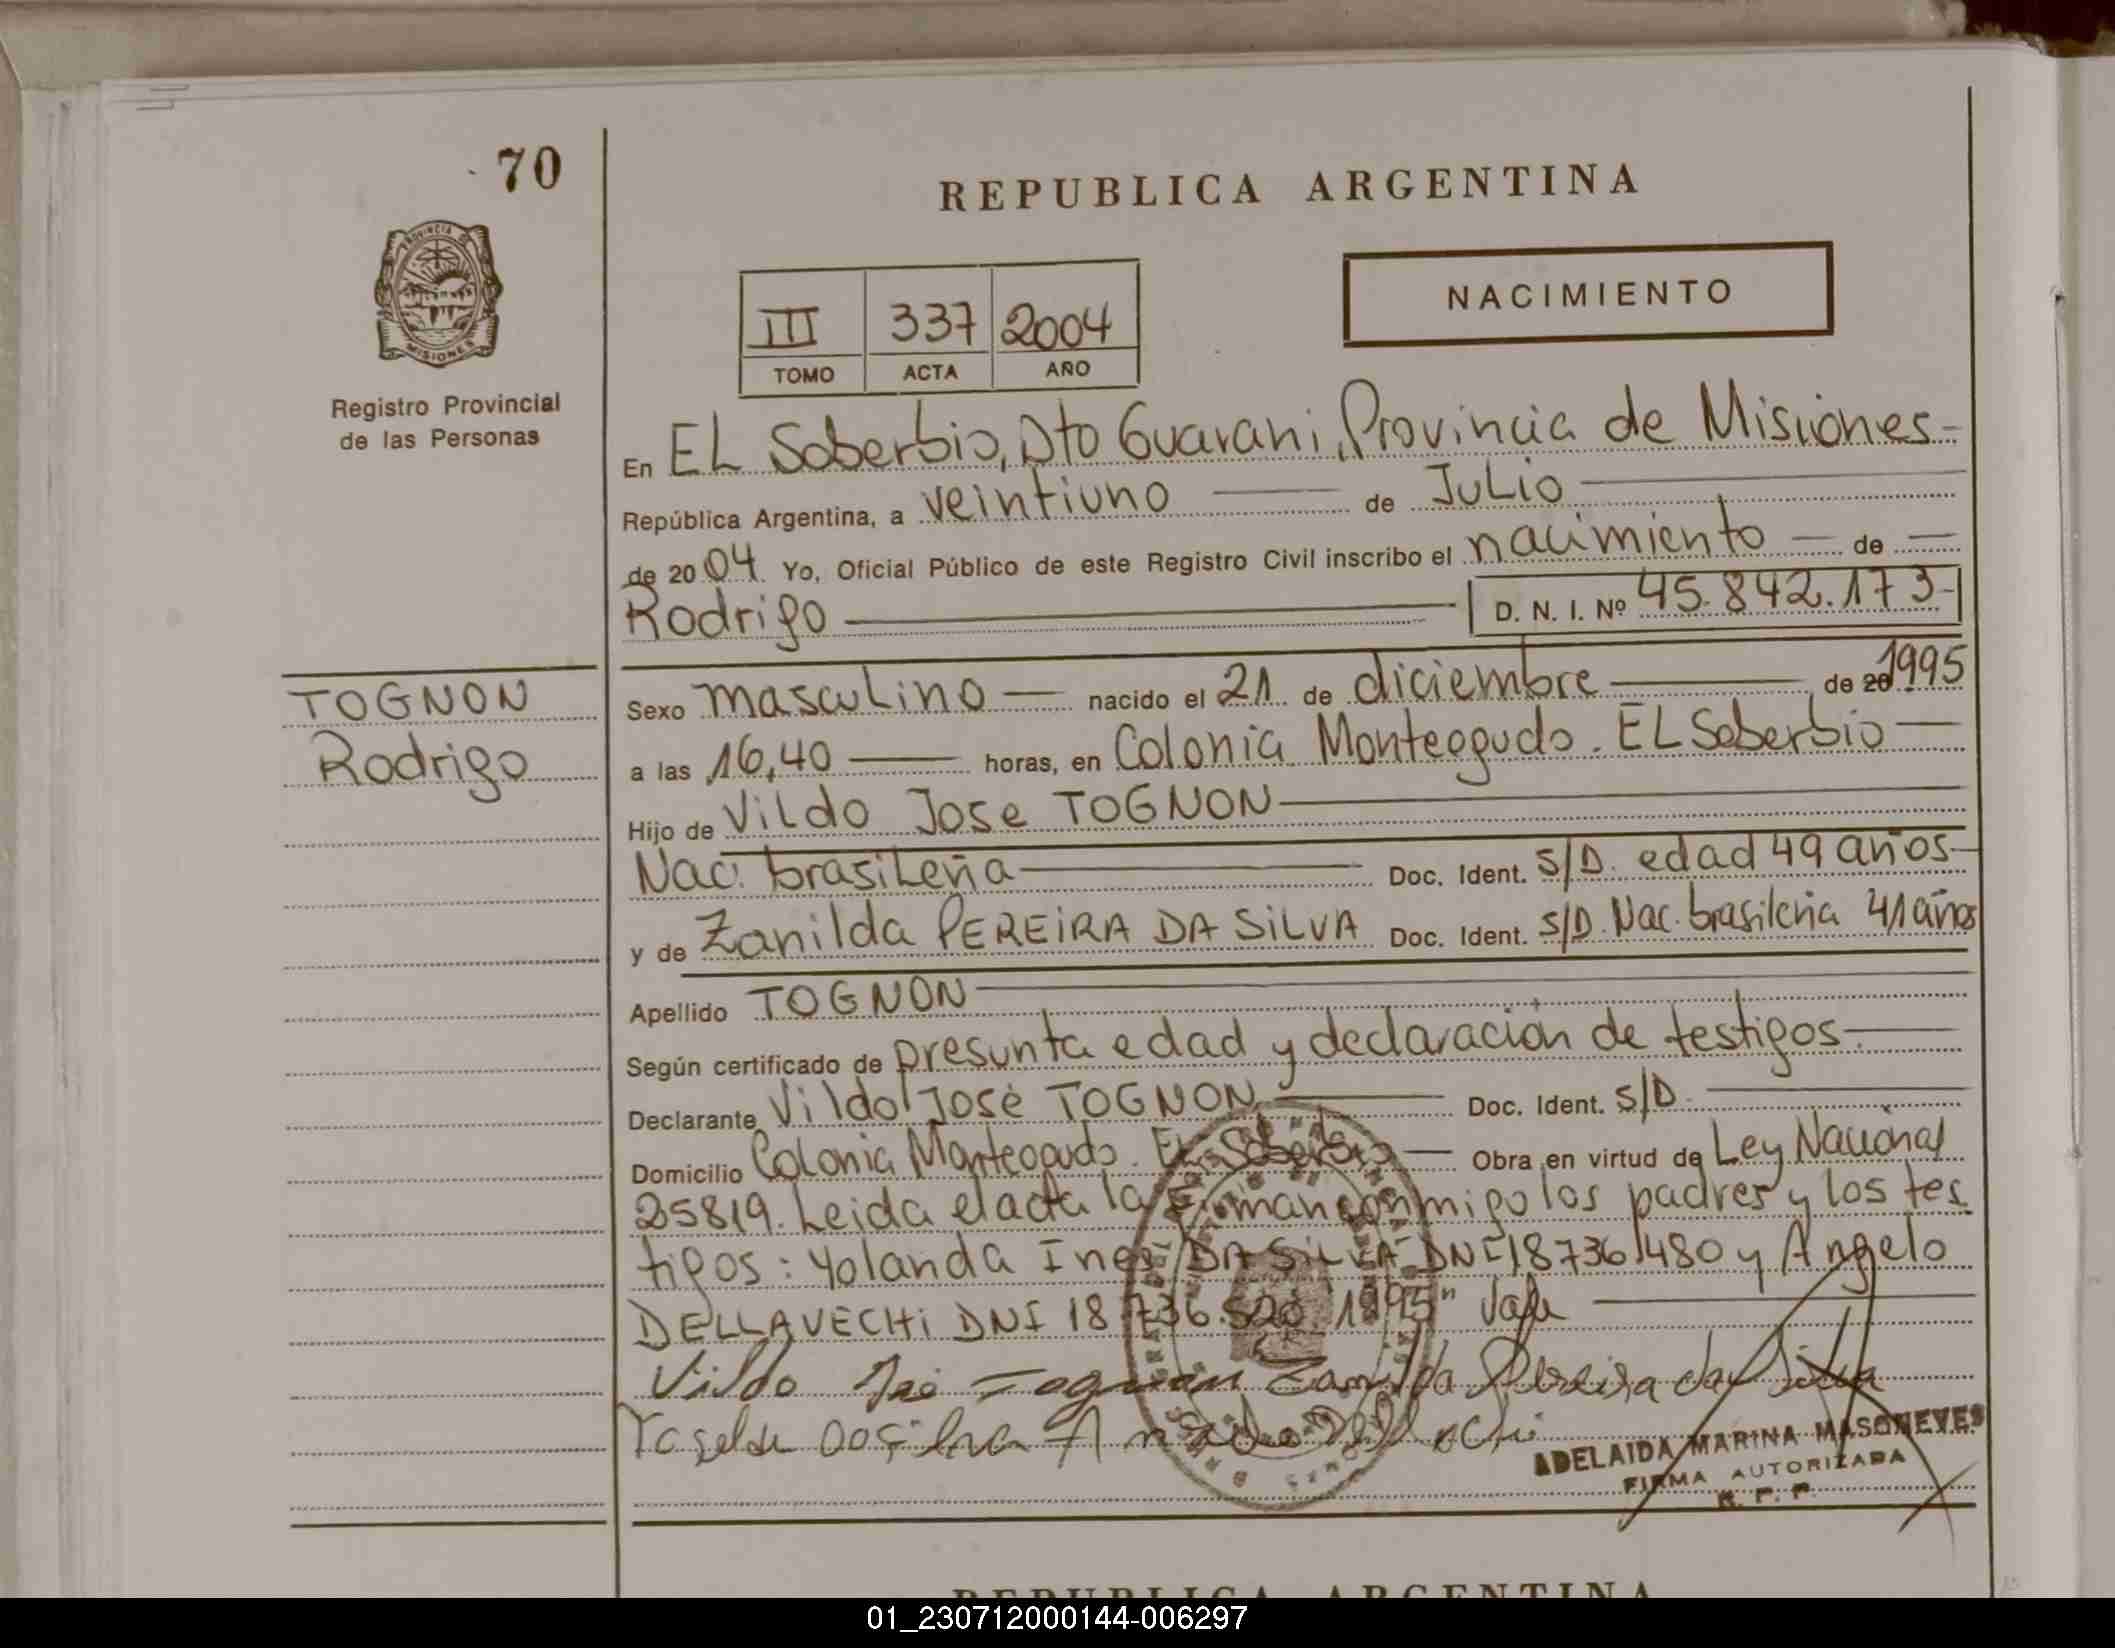 70
REPUBLICA ARGENTINA
PROVINCIA DE
MISIONES
NACIMIENTO
III 337 2004
TOMO ACTA AÑO
Registro Provincial
de las Personas
En EL Soberbio, Dto Guarani, Provincia de Misiones
República Argentina, a veintiuno de Julio
de 2004. Yo, Oficial Público de este Registro Civil inscribo el nacimiento de
Rodrigo D. N. I. Nº 45.842.173
TOGNON
Rodrigo
Sexo masculino nacido el 21 de diciembre de 20 1995
a las 16,40 horas, en Colonia Monteagudo. EL Soberbio
Hijo de Vildo Jose TOGNON
Nac. brasileña Doc. Ident. S/D. edad 49 años
y de Zanilda PEREIRA DA SILVA Doc. Ident. S/D. Nac. brasileña 41 años
Apellido TOGNON
Según certificado de presunta edad y declaración de testigos.
Declarante Vildo José TOGNON Doc. Ident. S/D.
Domicilio Colonia Monteagudo. EL Soberbio Obra en virtud de Ley Nacional
25819. Leida el acta la firman conmigo los padres y los tes
tigos: Yolanda Ines DA SILVA DNI 18736480 y Angelo
DELLAVECHI DNI 18.736.520. 1995" Vale
Vildo José Tognon Zanilda Pereira da Silva
ADELAIDA MARINA MASONEVES
FIRMA AUTORIZADA
R. P. P.
REPUBLICA ARGENTINA
01_230712000144-006297